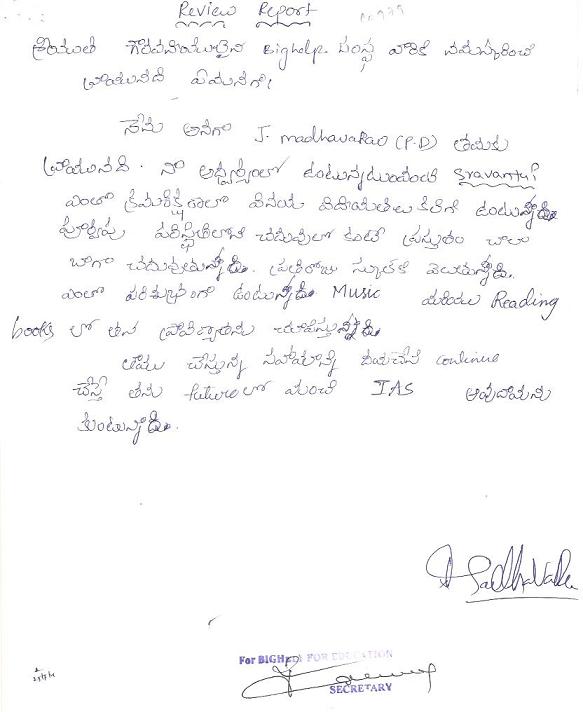 Review Report
శ్రీయుత గౌరవనీయులైన Bighelp. సంస్థ వారికి నమస్కరించి
వ్రాయునది ఏమనగా
నేను అనగా J. madhavaRao (P.D) తమకు
వ్రాయునది. నా అధ్వర్యంలో ఉంటున్నటువంటి Sravanthi
ఎంతో క్రమశిక్షణలో వినయ విధేయతలు కలిగి ఉంటున్నాడు
పూర్వపు పరిస్థితిలోని చదువులో కంటే ప్రస్తుతం చాలా
బాగా చదువుతున్నాడు. ప్రతిరోజు స్కూలుకి వెలుతున్నాడు.
ఎంతో పరిశుభ్రంగా ఉంటున్నాడు Music మరియు Reading
books లో తన ప్రావిణ్యతను చూపిస్తున్నాడు
తాము చేస్తున్న సహాయాన్ని దయచేసి continue
చేస్తే తను future లో మంచి IAS అవుదామను
కుంటున్నాడు.
For BIGHELP FOR EDUCATION
SECRETARY